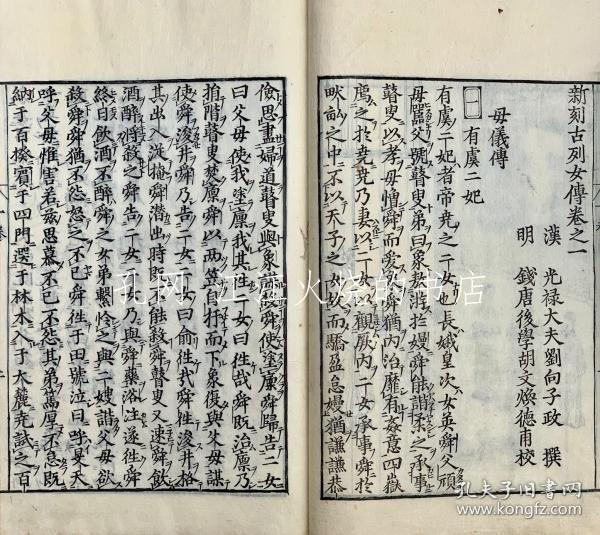 新刻古列女傳卷之一
漢 光祿大夫劉向子政 撰
明 錢唐後學胡文煥德甫校
母儀傳
一 有虞二妃
有虞二妃者帝堯之二女也長娥皇次女英舜父頑
母嚚父號瞽叟弟曰象敖游於嫚舜能諧柔之承事
瞽叟以孝母憎舜而愛象舜猶内治靡有姦意四嶽
薦之於堯堯乃妻以二女以觀厥内二女承事舜於
畎畝之中不以天子之女故而驕盈怠嫚猶謙謙恭
儉思盡婦道瞽叟與象謀殺舜使塗廩舜歸告二女
曰父母使我塗廩我其往二女曰往哉舜既治廩乃
捐階瞽叟焚廩舜以兩笠自扞而下象復與父母謀
使舜浚井舜乃告二女二女曰俞往哉舜往浚井格
其出入從掩舜潛出時既不能殺舜瞽叟又速舜飲
酒醉將殺之舜告二女二女乃與舜藥浴汪遂往舜
終日飲酒不醉舜之女弟繫憐之與二嫂諧父母欲
殺舜舜猶不怨怒之不已舜往于田號泣曰呼旻天
呼父母惟害若茲思慕不已不怨其弟篤厚不怠既
納于百揆賓于四門選于林木入于大麓堯試之百
孔网 江左火烧的书店
孔夫子旧书网
www.kongfz.com